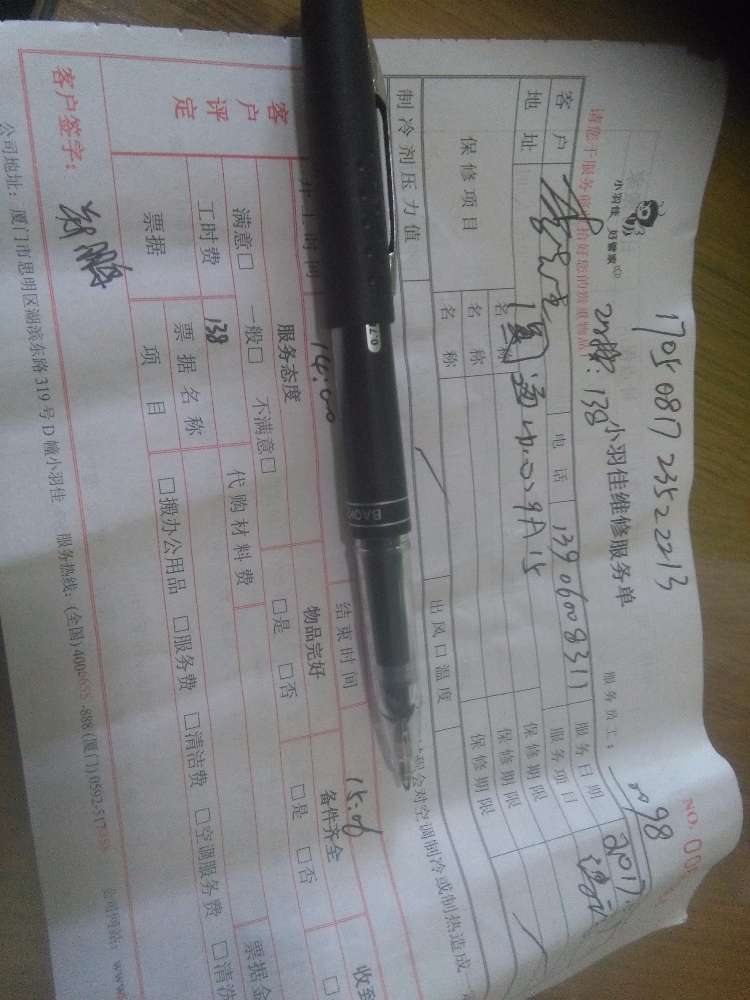 1705081723522213
小羽佳 好管家
小羽佳维修服务单
NO. 00
138
请您于服务前
好您的贵重物品
服务员工: 0098
客户
电话 13906008311
服务日期 2017
地址
中心9A15
服务项目
保修项目
名称
保修期限
名称
保修期限
名称
保修期限
制冷剂压力值
出风口温度
会对空调制冷或制热造成一
开工时间 14:00
结束时间 15:00
客户评定
服务态度
物品完好
备件齐全
收到
满意□ 一般□ 不满意□
□是 □否
□是 □否
□
工时费 138
代购材料费
票据
票据名称
票据金
项目
□搬办公用品 □服务费 □清洁费 □空调服务费 □清洗
客户签字:
公司地址: 厦门市思明区湖滨东路319号D幢小羽佳 服务热线: (全国) 400-658-888 (厦门) 0592-517 公司网站: www.